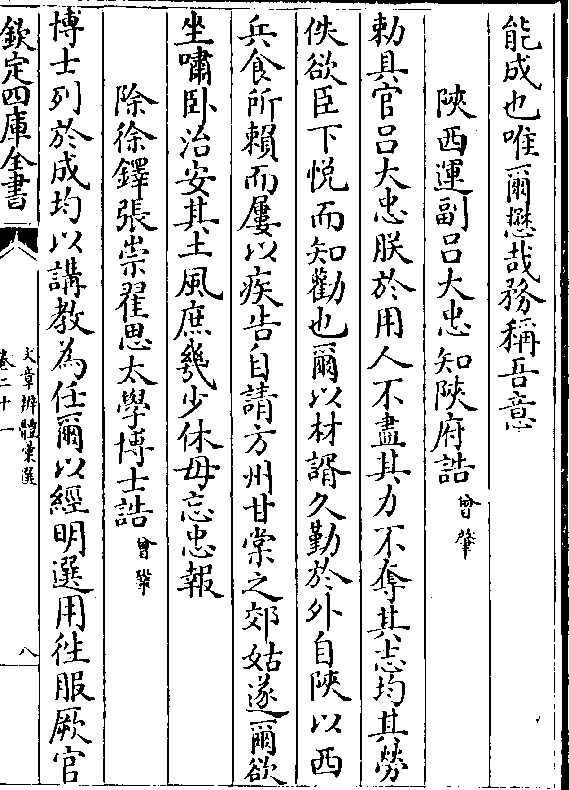 能成也唯爾懋哉務稱吾意
陜西運副吕大忠知陜府誥曾肇
勅具官吕大忠朕於用人不盡其力不奪其志均其勞
佚欲臣下悦而知勸也爾以材諝久勤於外自陜以西
兵食所賴而屢以疾告自請方州甘棠之郊姑遂爾欲
坐嘯卧治安其土風庶幾少休毋忘忠報
除徐鐸張崇翟思太學博士誥曾肇
博士列於成均以講教為任爾以經明選用徃服厥官
欽定四庫全書
文章辨體彚選
卷二十一
八